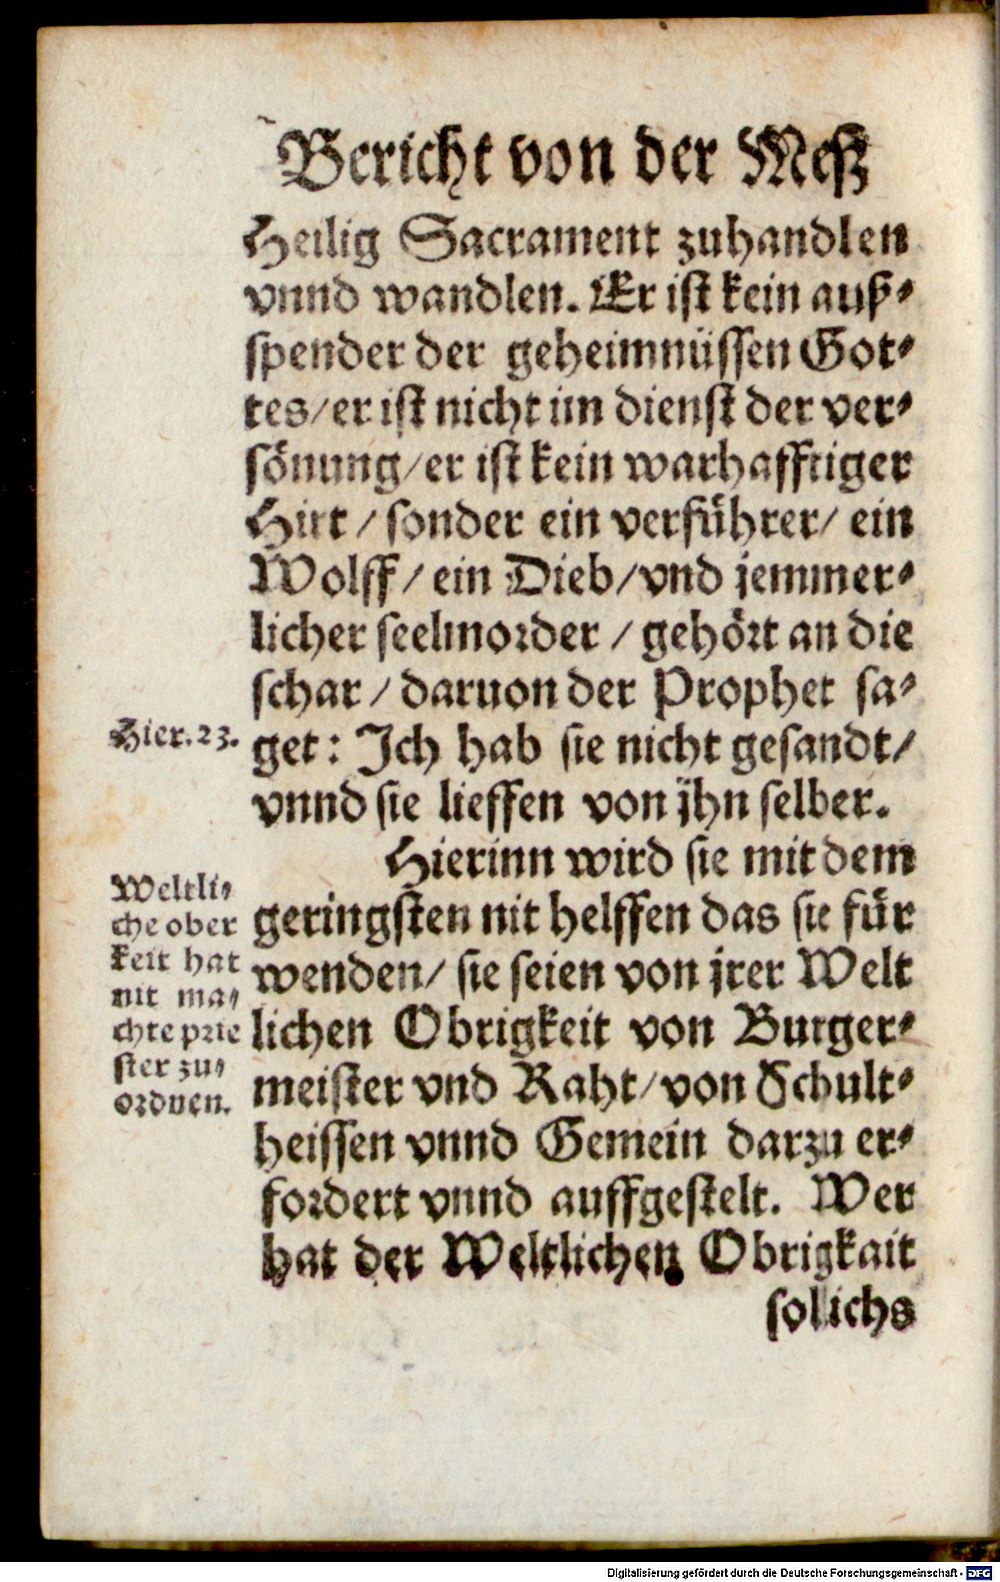 Bericht von der Meß
Heilig Sacrament zuhandlen
vnnd wandlen. Er ist kein auß-
spender der geheimnüssen Got-
tes/er ist nicht im dienst der ver-
sönung/er ist kein warhafftiger
Hirt / sonder ein verführer/ ein
Wolff / ein Dieb/vnd jemmer-
licher seelmorder / gehört an die
schar / daruon der Prophet sa-
Hier. 23.
get: Ich hab sie nicht gesandt/
vnnd sie lieffen von jhn selber.
Hierinn wird sie mit dem
geringsten nit helffen das sie für
wenden/ sie seien von jrer Welt
lichen Obrigkeit von Burger-
meister vnd Raht/von Schult-
heissen vnnd Gemein darzu er-
fordert vnnd auffgestelt. Wer
hat der Weltlichen Obrigkait
solichs
Weltli-
che ober
keit hat
nit ma-
chte prie
ster zu-
ordnen.
Digitalisierung gefördert durch die Deutsche Forschungsgemeinschaft - DFG